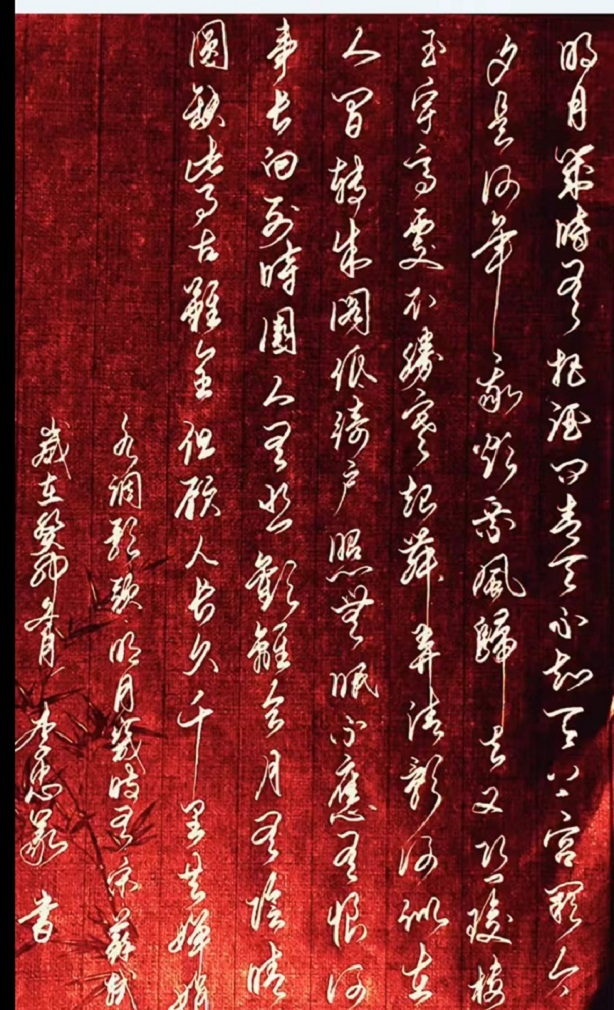 明月幾時有把酒問青天不知天上宮闕今
夕是何年我欲乘風歸去又恐瓊樓
玉宇高處不勝寒起舞弄清影何似在
人間轉朱閣低綺戶照無眠不應有恨何
事長向別時圓人有悲歡離合月有陰晴
圓缺此事古難全但願人長久千里共嬋娟
水調歌頭明月幾時有宋蘇軾
歲在癸卯月李忠書